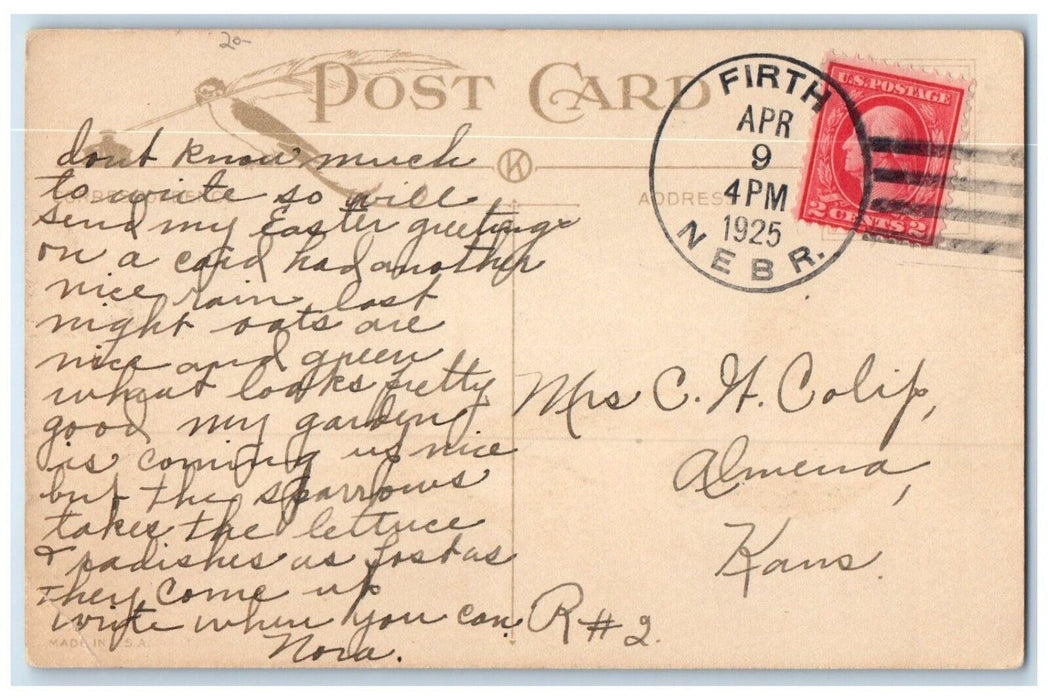 20-
POST CARD
FIRTH
APR
9
4PM
1925
NEBR.
U.S. POSTAGE
2 CENTS 2
K
ADDRESS
dont know much
to write so will
send my Easter greetings
on a card had another
nice rain last
night oats are
nice and green
wheat looks pretty
good my garden
is coming up nice
but the sparrows
takes the lettuce
& radishes as fast as
they come up
write when you can
Nora.
Mrs C. H. Colip,
Almena,
Kans.
R#2.
MADE IN U.S.A.